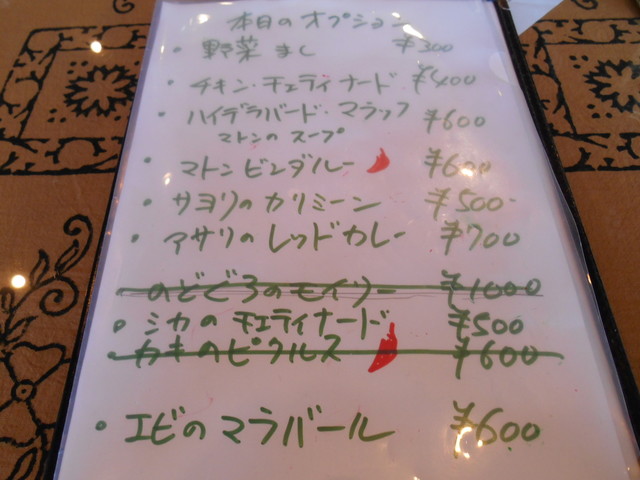 本日のオプション
・野菜まし ¥300
・チキン・チェティナード ¥400
・ハイデラバード・マラッフ ¥600
マトンのスープ
・マトンビンダルー ¥600
・サヨリのカリミーン ¥500
・アサリのレッドカレー ¥700
のどぐろのモイリー ¥1000
・シカのチェティナード ¥500
・カキのピクルス ¥600
・エビのマラバール ¥600